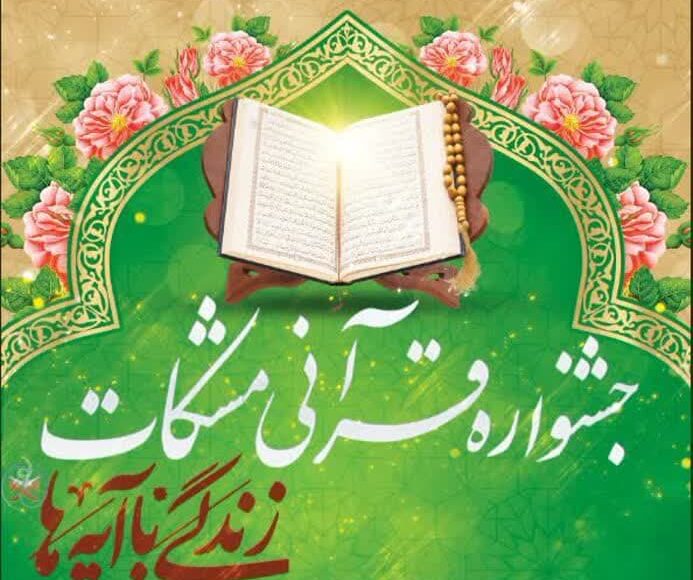 جشنواره قرآنی مشکات
زندگی با آیه ها